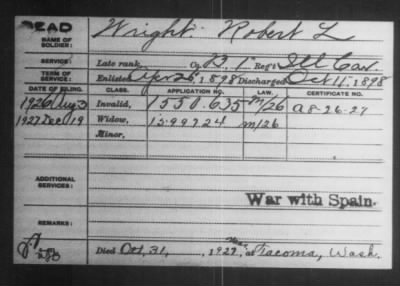 DEAD
NAME OF SOLDIER: Wright Robert L
SERVICE: Late rank, Co. B, 1 Reg't Ill Cav.
TERM OF SERVICE: Enlisted Apr 26, 1898 Discharged Oct 11, 1898
DATE OF FILING. CLASS. APPLICATION NO. LAW. CERTIFICATE NO.
1926 Aug 3 Invalid, 1550.635 m/26 A 8-26-27
1927 Dec 19 Widow, 1599724 m/26
Minor,
ADDITIONAL SERVICES:
War with Spain.
REMARKS:
Died Oct, 31, 1927, at Tacoma, Wash.